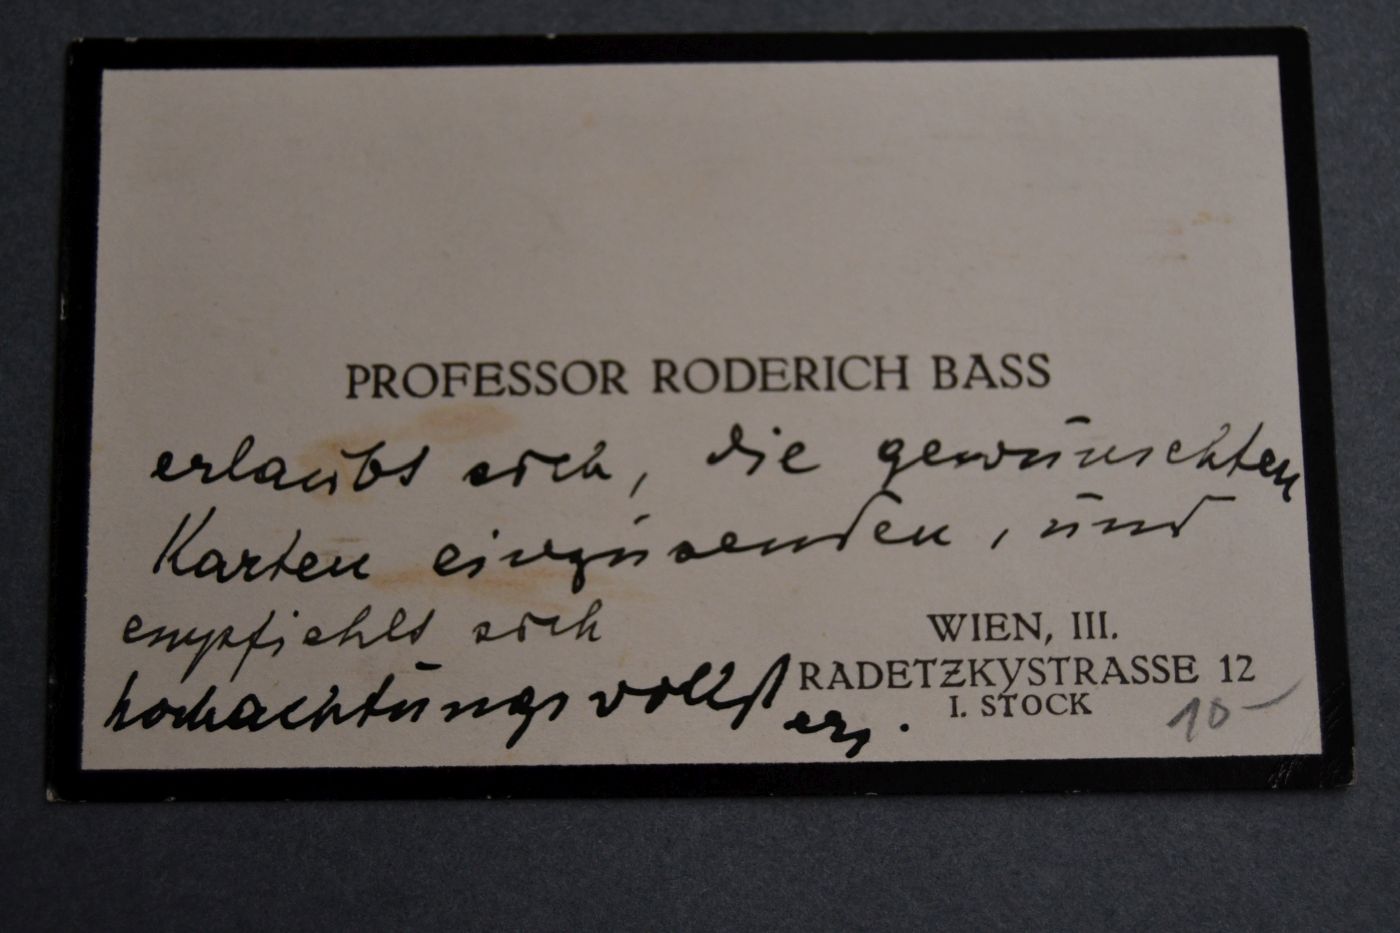 PROFESSOR RODERICH BASS
erlaubt sich, die gewünschten
Karten einzusenden, und
empfiehlt sich
hochachtungsvollst
WIEN, III.
RADETZKYSTRASSE 12
I. STOCK
10-